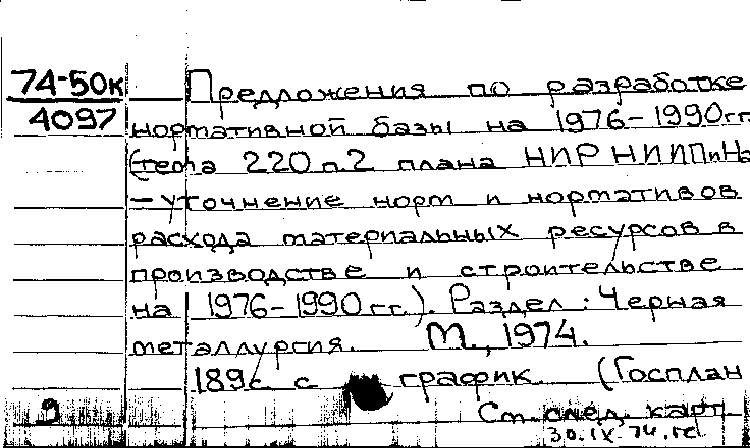 74-50к
4097
Предложения по разработке
нормативной базы на 1976-1990гг.
(тема 220 п.2 плана НИР НИИПиН
— уточнение норм и нормативов
расхода материальных ресурсов в
производстве и строительстве
на 1976-1990 гг.). Раздел: Черная
металлургия. М., 1974.
189 с с график. (Госплан
9
См. след. карт.
30.IX.74.